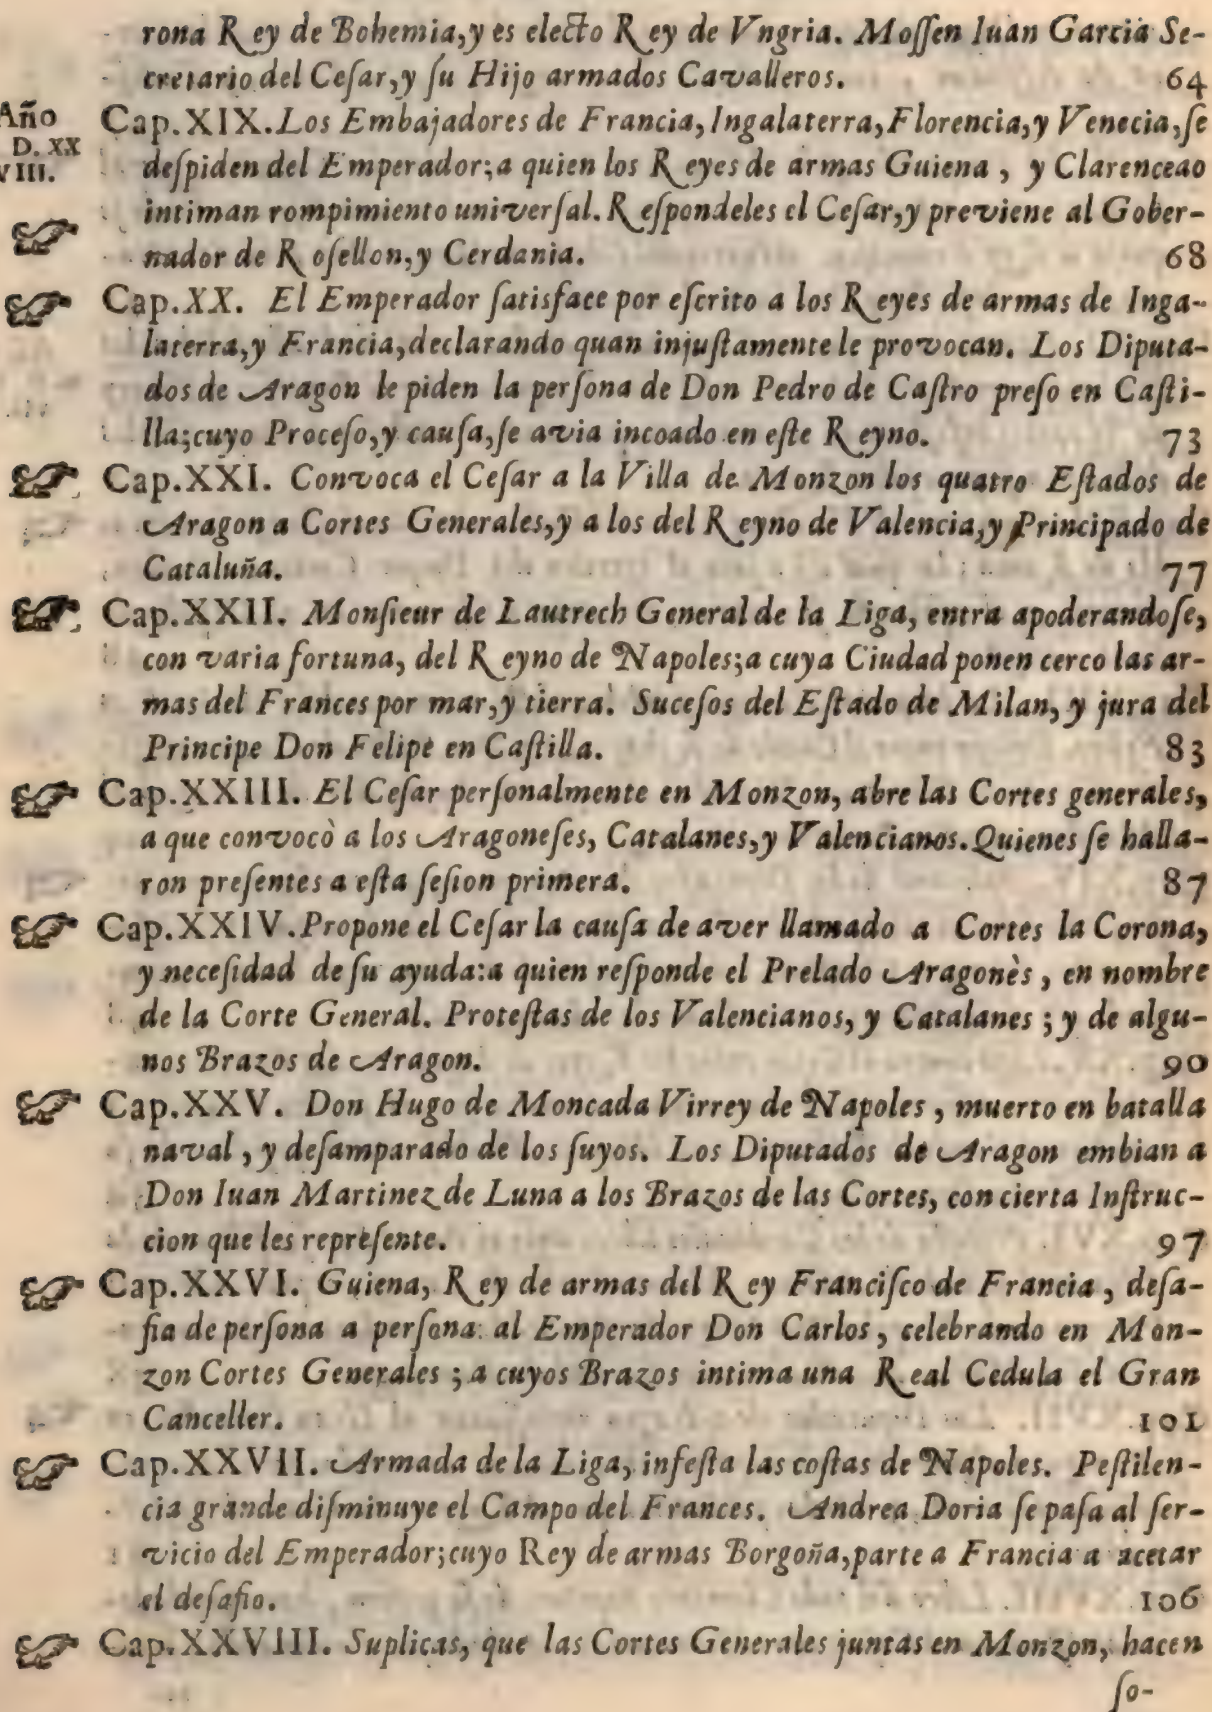 rona Rey de Bohemia,y es electo Rey de Vngria. Moſſen Iuan Garcia Se-
cretario del Ceſar,y ſu Hijo armados Cavalleros. 64
Año
D. XX
VIII.
Cap.XIX.Los Embajadores de Francia,Ingalaterra,Florencia,y Venecia,ſe
deſpiden del Emperador;a quien los Reyes de armas Guiena , y Clarenceao
intiman rompimiento univerſal.Reſpondeles el Ceſar,y previene al Gober-
nador de Roſellon,y Cerdania. 68
Cap.XX. El Emperador ſatisface por eſcrito a los Reyes de armas de Inga-
laterra,y Francia,declarando quan injuſtamente le provocan. Los Diputa-
dos de Aragon le piden la perſona de Don Pedro de Caſtro preſo en Caſti-
lla;cuyo Proceſo,y cauſa,ſe avia incoado en eſte Reyno. 73
Cap.XXI. Convoca el Ceſar a la Villa de Monzon los quatro Eſtados de
Aragon a Cortes Generales,y a los del Reyno de Valencia,y Principado de
Cataluña. 77
Cap.XXII. Monſieur de Lautrech General de la Liga, entra apoderandoſe,
con varia fortuna, del Reyno de Napoles;a cuya Ciudad ponen cerco las ar-
mas del Frances por mar,y tierra. Suceſos del Eſtado de Milan, y jura del
Principe Don Felipe en Caſtilla. 83
Cap.XXIII. El Ceſar perſonalmente en Monzon, abre las Cortes generales,
a que convocò a los Aragoneſes, Catalanes,y Valencianos.Quienes ſe halla-
ron preſentes a eſta ſeſion primera. 87
Cap.XXIV.Propone el Ceſar la cauſa de aver llamado a Cortes la Corona,
y neceſidad de ſu ayuda:a quien reſponde el Prelado Aragonès , en nombre
de la Corte General. Proteſtas de los Valencianos, y Catalanes ; y de algu-
nos Brazos de Aragon. 90
Cap.XXV. Don Hugo de Moncada Virrey de Napoles , muerto en batalla
naval , y deſamparado de los ſuyos. Los Diputados de Aragon embian a
Don Iuan Martinez de Luna a los Brazos de las Cortes, con cierta Inſtruc-
cion que les repreſente. 97
Cap.XXVI. Guiena, Rey de armas del Rey Franciſco de Francia , deſa-
fia de perſona a perſona al Emperador Don Carlos , celebrando en Mon-
zon Cortes Generales ; a cuyos Brazos intima una Real Cedula el Gran
Canceller. 101
Cap.XXVII. Armada de la Liga, infeſta las coſtas de Napoles. Peſtilen-
cia grande diſminuye el Campo del Frances. Andrea Doria ſe paſa al ſer-
vicio del Emperador;cuyo Rey de armas Borgoña,parte a Francia a acetar
el deſafio. 106
Cap.XXVIII. Suplicas, que las Cortes Generales juntas en Monzon, hacen
ſo-